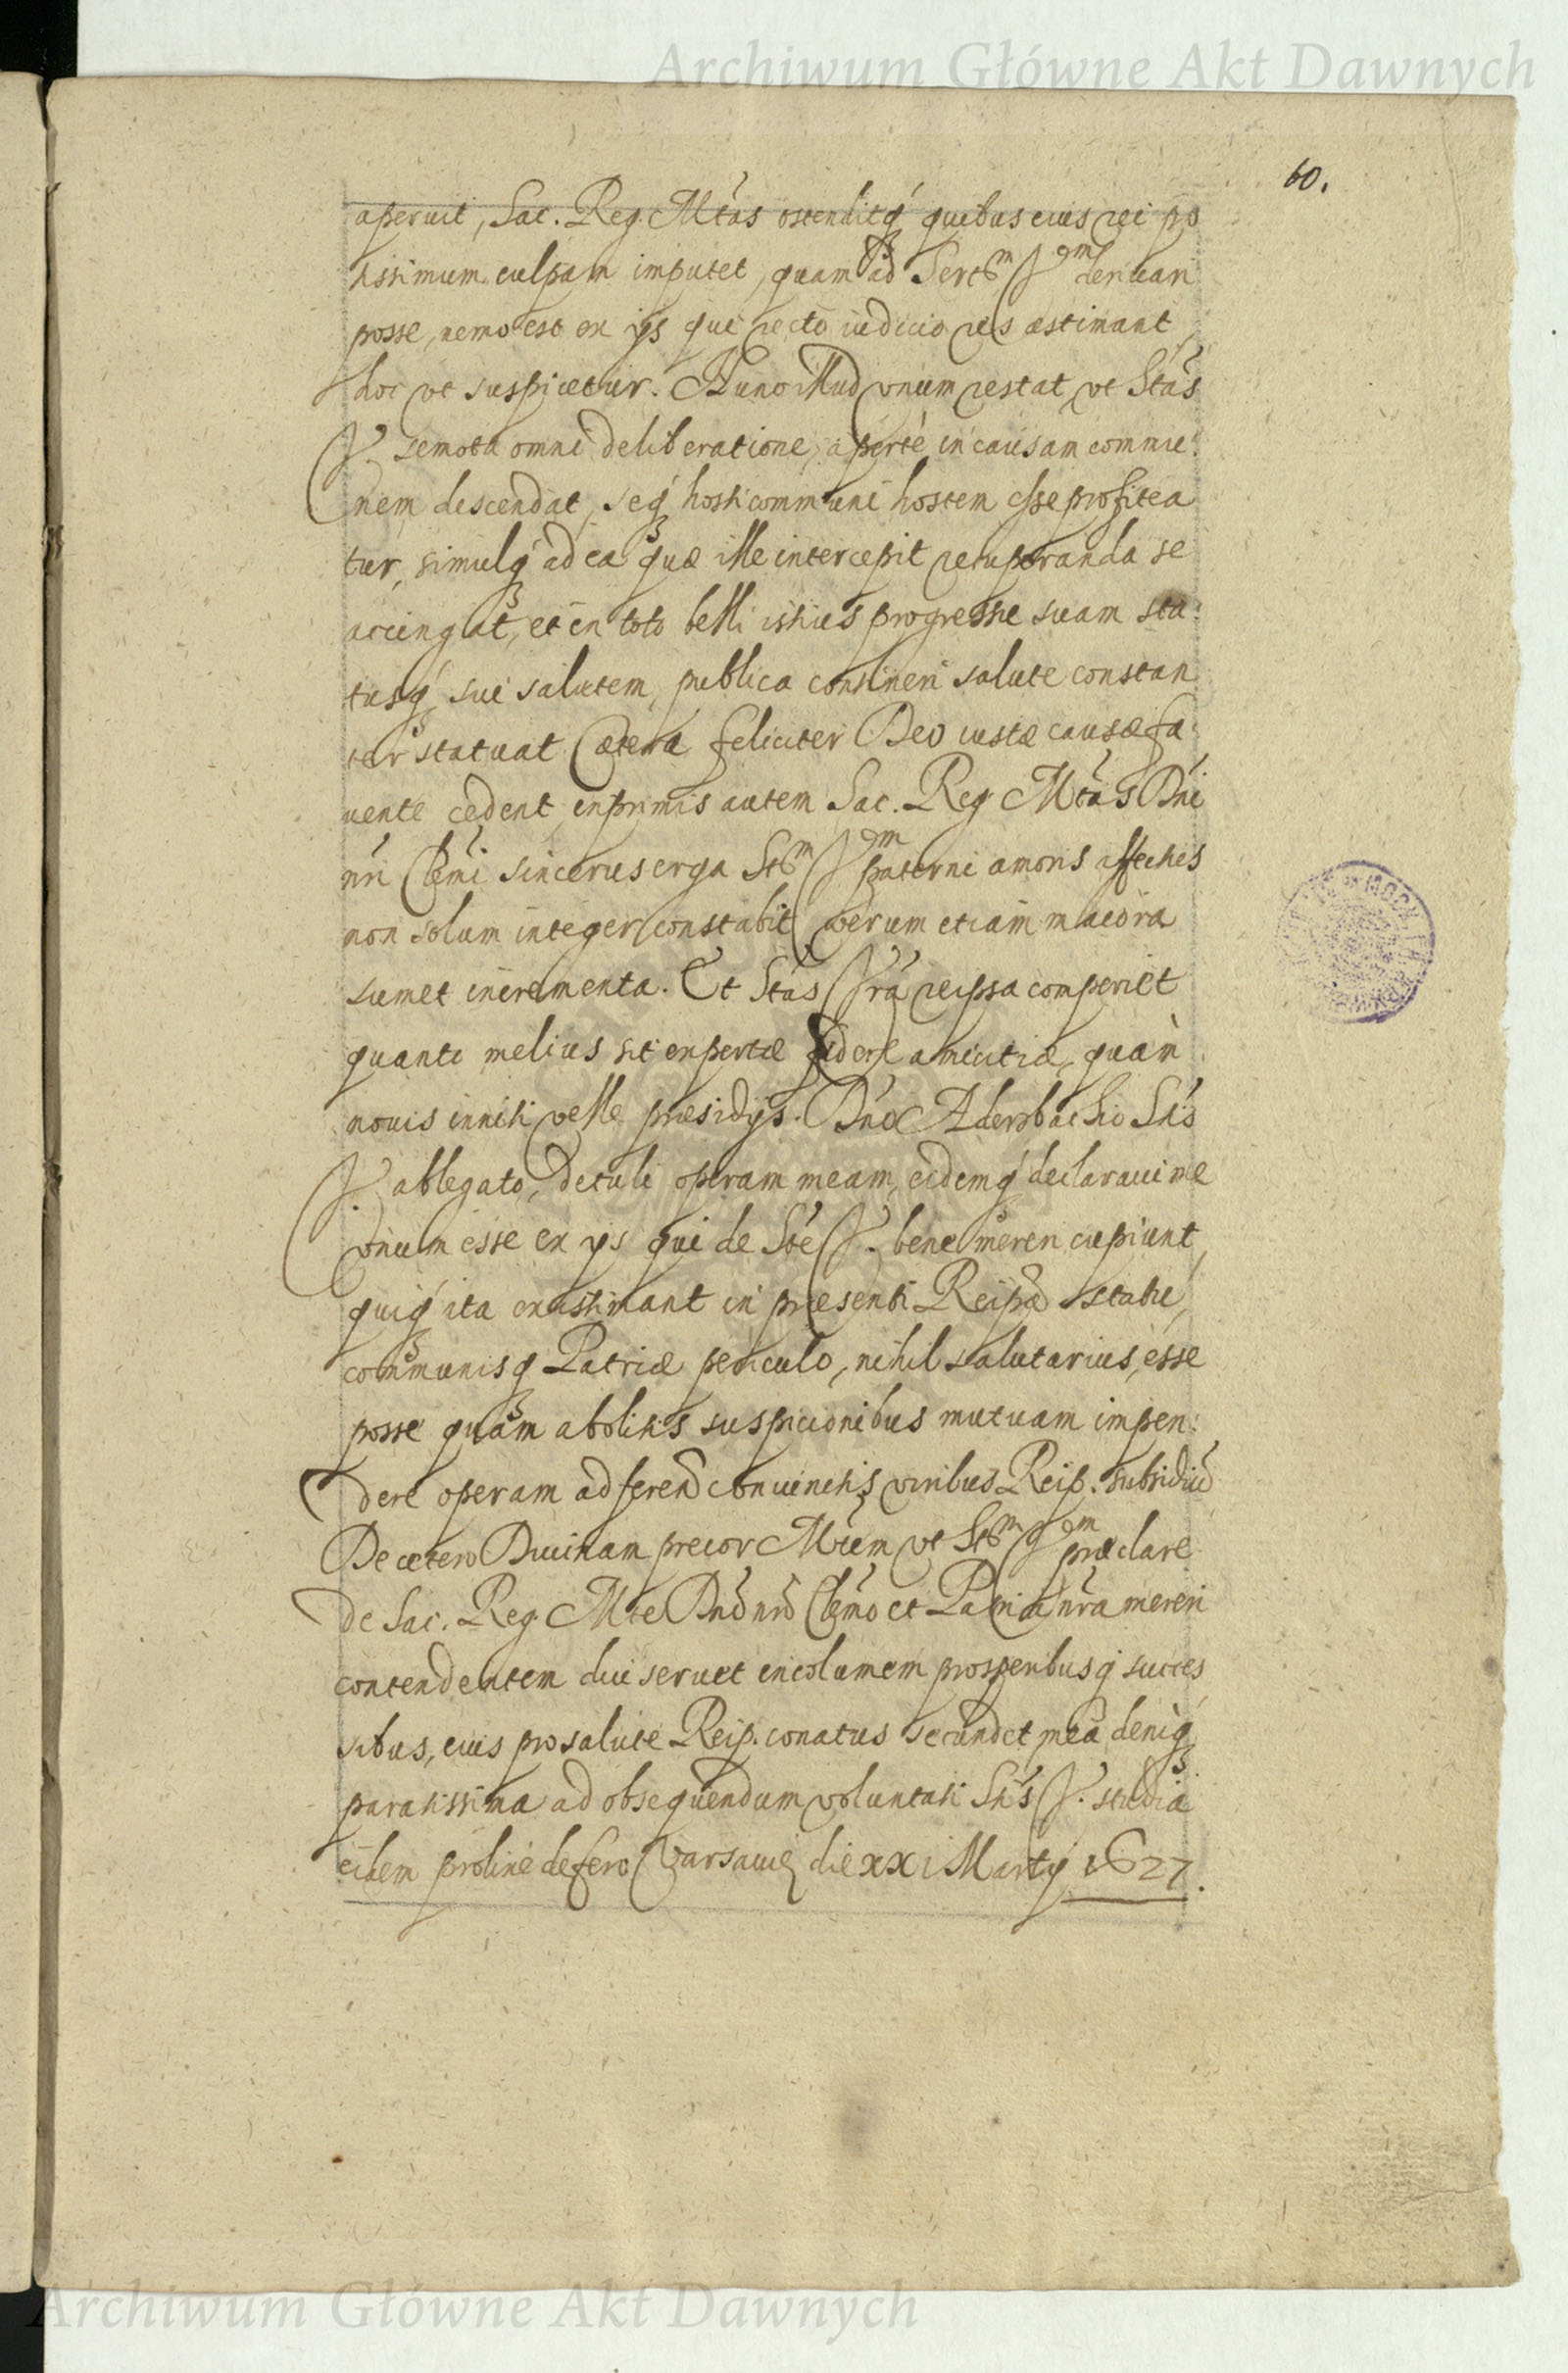 Archiwum Główne Akt Dawnych
60.
aperuit, Sac. Reg. Mtas ostenditq́ quibus eius rei po
tissimum culpam imputet, quam ad Sertem V. derivari
posse, nemo est ex ijs qui recto iudicio res æstimant
hoc vt suspicetur. Nunc illud vnum restat, vt Stas
V. semota omni deliberatione, aperté in causam commu:
nem descendat, seq́ hosti communi hostem esse profitea
tur, simulq́ ad ea quæ ille intercepit recuperanda se
accingat, et in toto belli istius progressu suam sta:
tusq́ sui salutem, publica contineri salute constan
ter statuat Cætera feliciter Deo iustæ causæ fa:
uente cedent, inprimis autem Sac. Reg. Mtas Dni
nri Clemi sincerus erga Sttem Vram paterni amoris affectus
non solum integer constabit verum etiam maiora
sumet incrementa. Et Stas Vra reipsa comperiet
quanti melius sit expertæ fidere amicitiæ, quàm
nouis inniti velle præsidijs. Dno Adersbachio Stis
V. ablegato, detuli operam meam, eidemq́ declaraui me
vnum esse ex ijs qui de Ste V. bene mereri cupiunt,
quiq́ ita existimant in præsenti Reipcæ statu,
communisq́ Patriæ periculo, nihil salutarius, esse
posse quam abolitis suspicionibus mutuam impen:
dere operam ad ferend coniunctis viribus Reip. subsidiũ
De cætero Diuinam precor Mtem vt Sttem Vram præclare
de Sac. Reg. Mte Dnõ nrõ Clemo et Patria nra mereri
contendentem diu seruet incolumem prosperibusq́ succes
sibus, eius pro salute Reip. conatus secundet mea deniq́
paratissima ad obsequendum voluntati Stis V. studia
eidem prolixe defero Varsauię die xxi Martij 1627.
Archiwum Główne Akt Dawnych